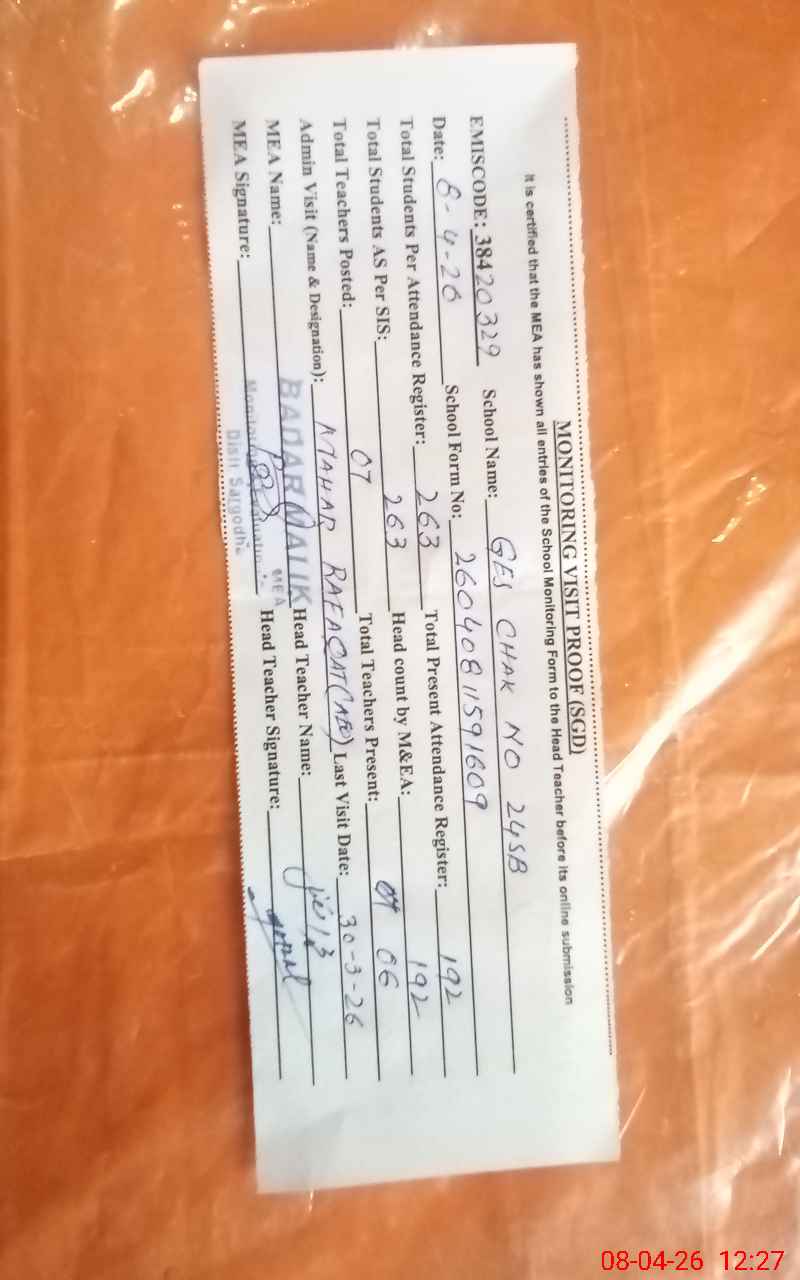 MONITORING VISIT PROOF (SGD)
It is certified that the MEA has shown all entries of the School Monitoring Form to the Head Teacher before its online submission
EMISCODE: 38420329 School Name: GES CHAK NO 24SB
Date: 8-4-26 School Form No: 2604081159 1609
Total Students Per Attendance Register: 263 Total Present Attendance Register: 192
Total Students AS Per SIS: 263 Head count by M&EA: 192
Total Teachers Posted: 07 Total Teachers Present: 06
Admin Visit (Name & Designation): MAHAR RAFAQAT (AEO) Last Visit Date: 30-3-26
MEA Name: BADAR MALIK MEA Head Teacher Name:
MEA Signature: Head Teacher Signature:
Distt Sargodha
08-04-26 12:27